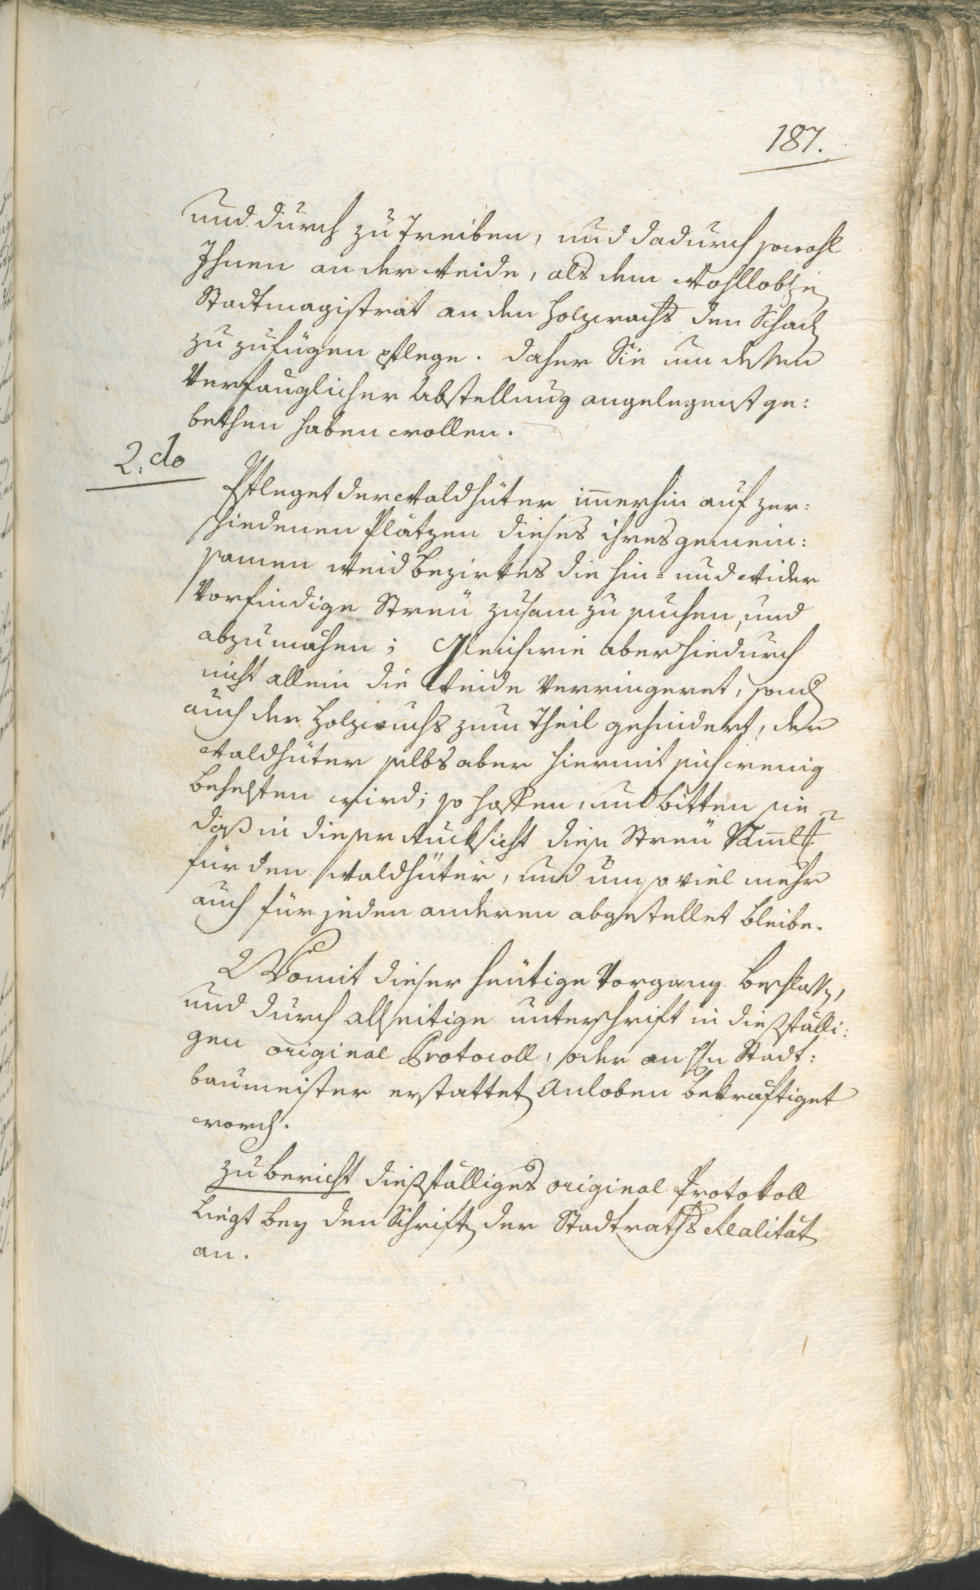 187.
und durch zu Treiben, und dadurch sowohl
Ihnen an der Weide, als dem Wohllobl:
Stadtmagistrat an den Holzwachs den Schad
zu zufügen pflege. Daher Sie um dessen
Verfänglicher Abstellung angelegenst ge:
bethen haben wollen.
2.do
Pfleget der Waldhüter immerhin auf zer:
schiedenen Plätzen dieses ihres gemein:
samen Weid Bezirkes die hin- und wider
Vorfindige Streü zusam zu suchen, und
abzumähen; Gleichwie aber hiedurch
nicht allein die Weide Verringeret, sond
auch der Holzwuchs zum Theil gehindert, der
Waldhüter selbs aber hiermit sich wenig
behelfen wird; so hoffen, und bitten sie
daß in dieser Rucksicht diese Streü
für den Waldhüter, und um so viel mehr
auch für jeden anderen abgestellet bleibe.
Womit dieser heutige Vorgang beschlossen,
und durch allseitige unterschrift in dießfälli:
gen original Protocoll, oder an Hn Stadt:
baumeister erstattet Anloben bekräftiget
word.
Zu bericht dießfälliges original Protokoll
Liegt bey den Schrift der Stadtraths Realität
an.